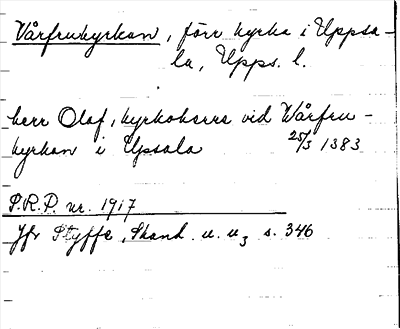 Vårfrukyrkan, förr kyrka i Uppsa-
la, Upps. l.
herr Olof, kyrkoherre vid Wårfru-
kyrkan i Upsala 25/3 1383
S.R.P. nr. 1917
Jfr Styffe, Skand. u. u3 s. 346